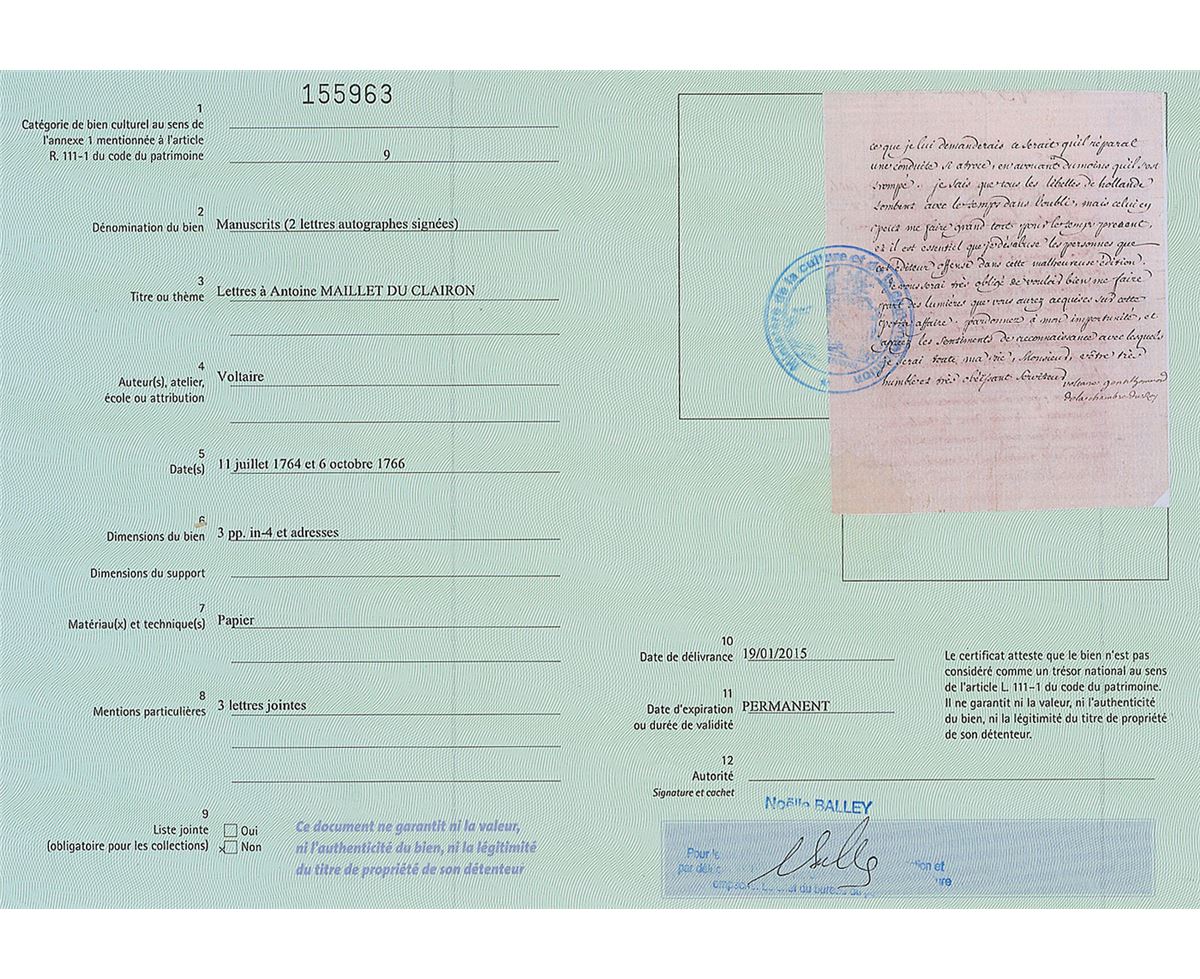 155963
1
Catégorie de bien culturel au sens de
l'annexe 1 mentionnée à l'article
R. 111-1 du code du patrimoine
9
2
Dénomination du bien
Manuscrits (2 lettres autographes signées)
3
Titre ou thème
Lettres à Antoine MAILLET DU CLAIRON
4
Auteur(s), atelier,
école ou attribution
Voltaire
5
Date(s)
11 juillet 1764 et 6 octobre 1766
6
Dimensions du bien
3 pp. in-4 et adresses
Dimensions du support
7
Matériau(x) et technique(s)
Papier
8
Mentions particulières
3 lettres jointes
9
Liste jointe
(obligatoire pour les collections)
Oui
x Non
Ce document ne garantit ni la valeur,
ni l'authenticité du bien, ni la légitimité
du titre de propriété de son détenteur
ce que je lui demanderais ce serait qu'il réparat
une conduite si atroce, en avouant dumoins qu'il s'est
trompé. je sais que tous les libelles de hollande
tombent avec le temps dans l'oubli, mais celui cy
peut me faire grand tort pour le temps présent,
et il est essentiel que je désabuse les personnes que
cet éditeur offense dans cette malheureuse édition.
je vous serai très obligé de vouloir bien me faire
part des lumières que vous aurez acquises sur cette
affaire. pardonnez à mon importunité, et
agréez les sentiments de reconnaissance avec lesquels
je serai toute ma vie, Monsieur, vôtre très
humble et très obéissant serviteur
voltaire gentilhomme ord
de la chambre du Roy
Ministère de la culture et de la communication
10
Date de délivrance
19/01/2015
11
Date d'expiration
ou durée de validité
PERMANENT
12
Autorité
Signature et cachet
Le certificat atteste que le bien n'est pas
considéré comme un trésor national au sens
de l'article L. 111-1 du code du patrimoine.
Il ne garantit ni la valeur, ni l'authenticité
du bien, ni la légitimité du titre de propriété
de son détenteur.
Noëlle BALLEY
Pour
par
du bureau du